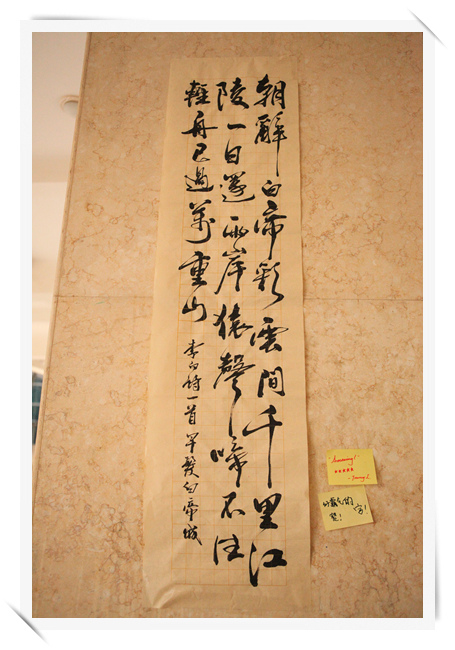 朝辭白帝彩雲間千里江
陵一日還兩岸猿聲啼不住
輕舟已過萬重山
李白詩一首 早發白帝城